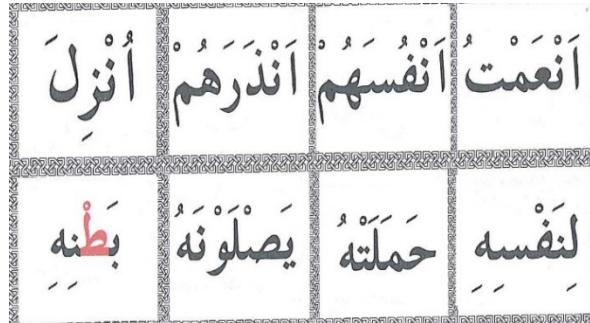 اَنْعَمْتُ اَنْفُسَهُمْ اَنْذَرَهُمْ اُنْزِلَ
لِنَفْسِهِ حَمَلَتْهُ يَصْلَوْنَهَُ بَطْنِهِ